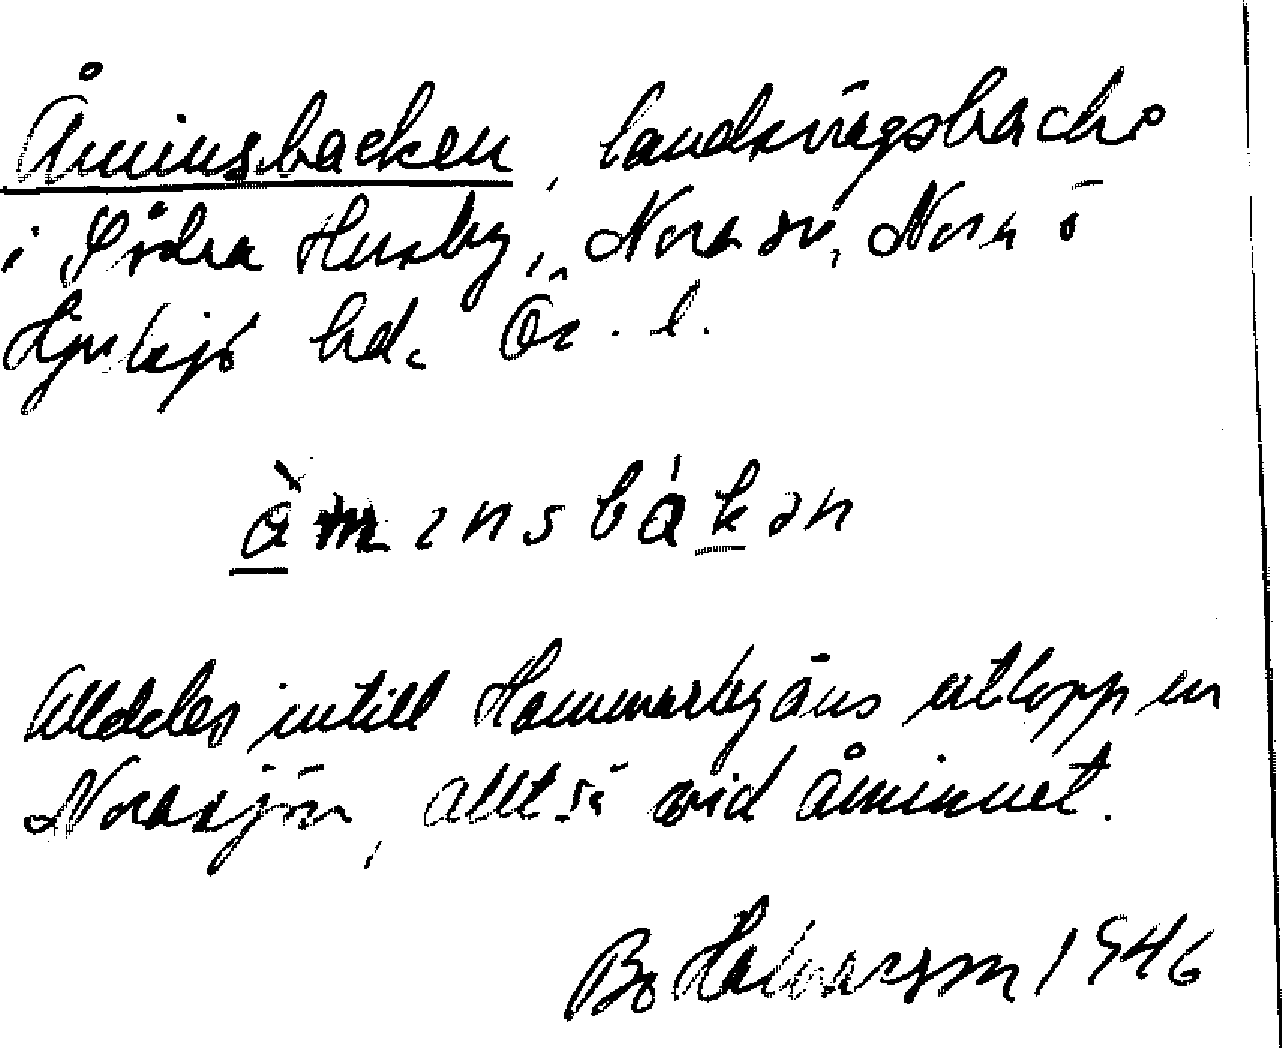 Åminsbacken, landsvägsbacke
i Södra Husby, Nora sn, Nora o
Hjulsjö hd. Ör. l.
åmɩnsbákən
Alldeles intill Hammarbyåns utlopp in
Norasjön, alltså vid åminnet.
Bo Halvarson 1946